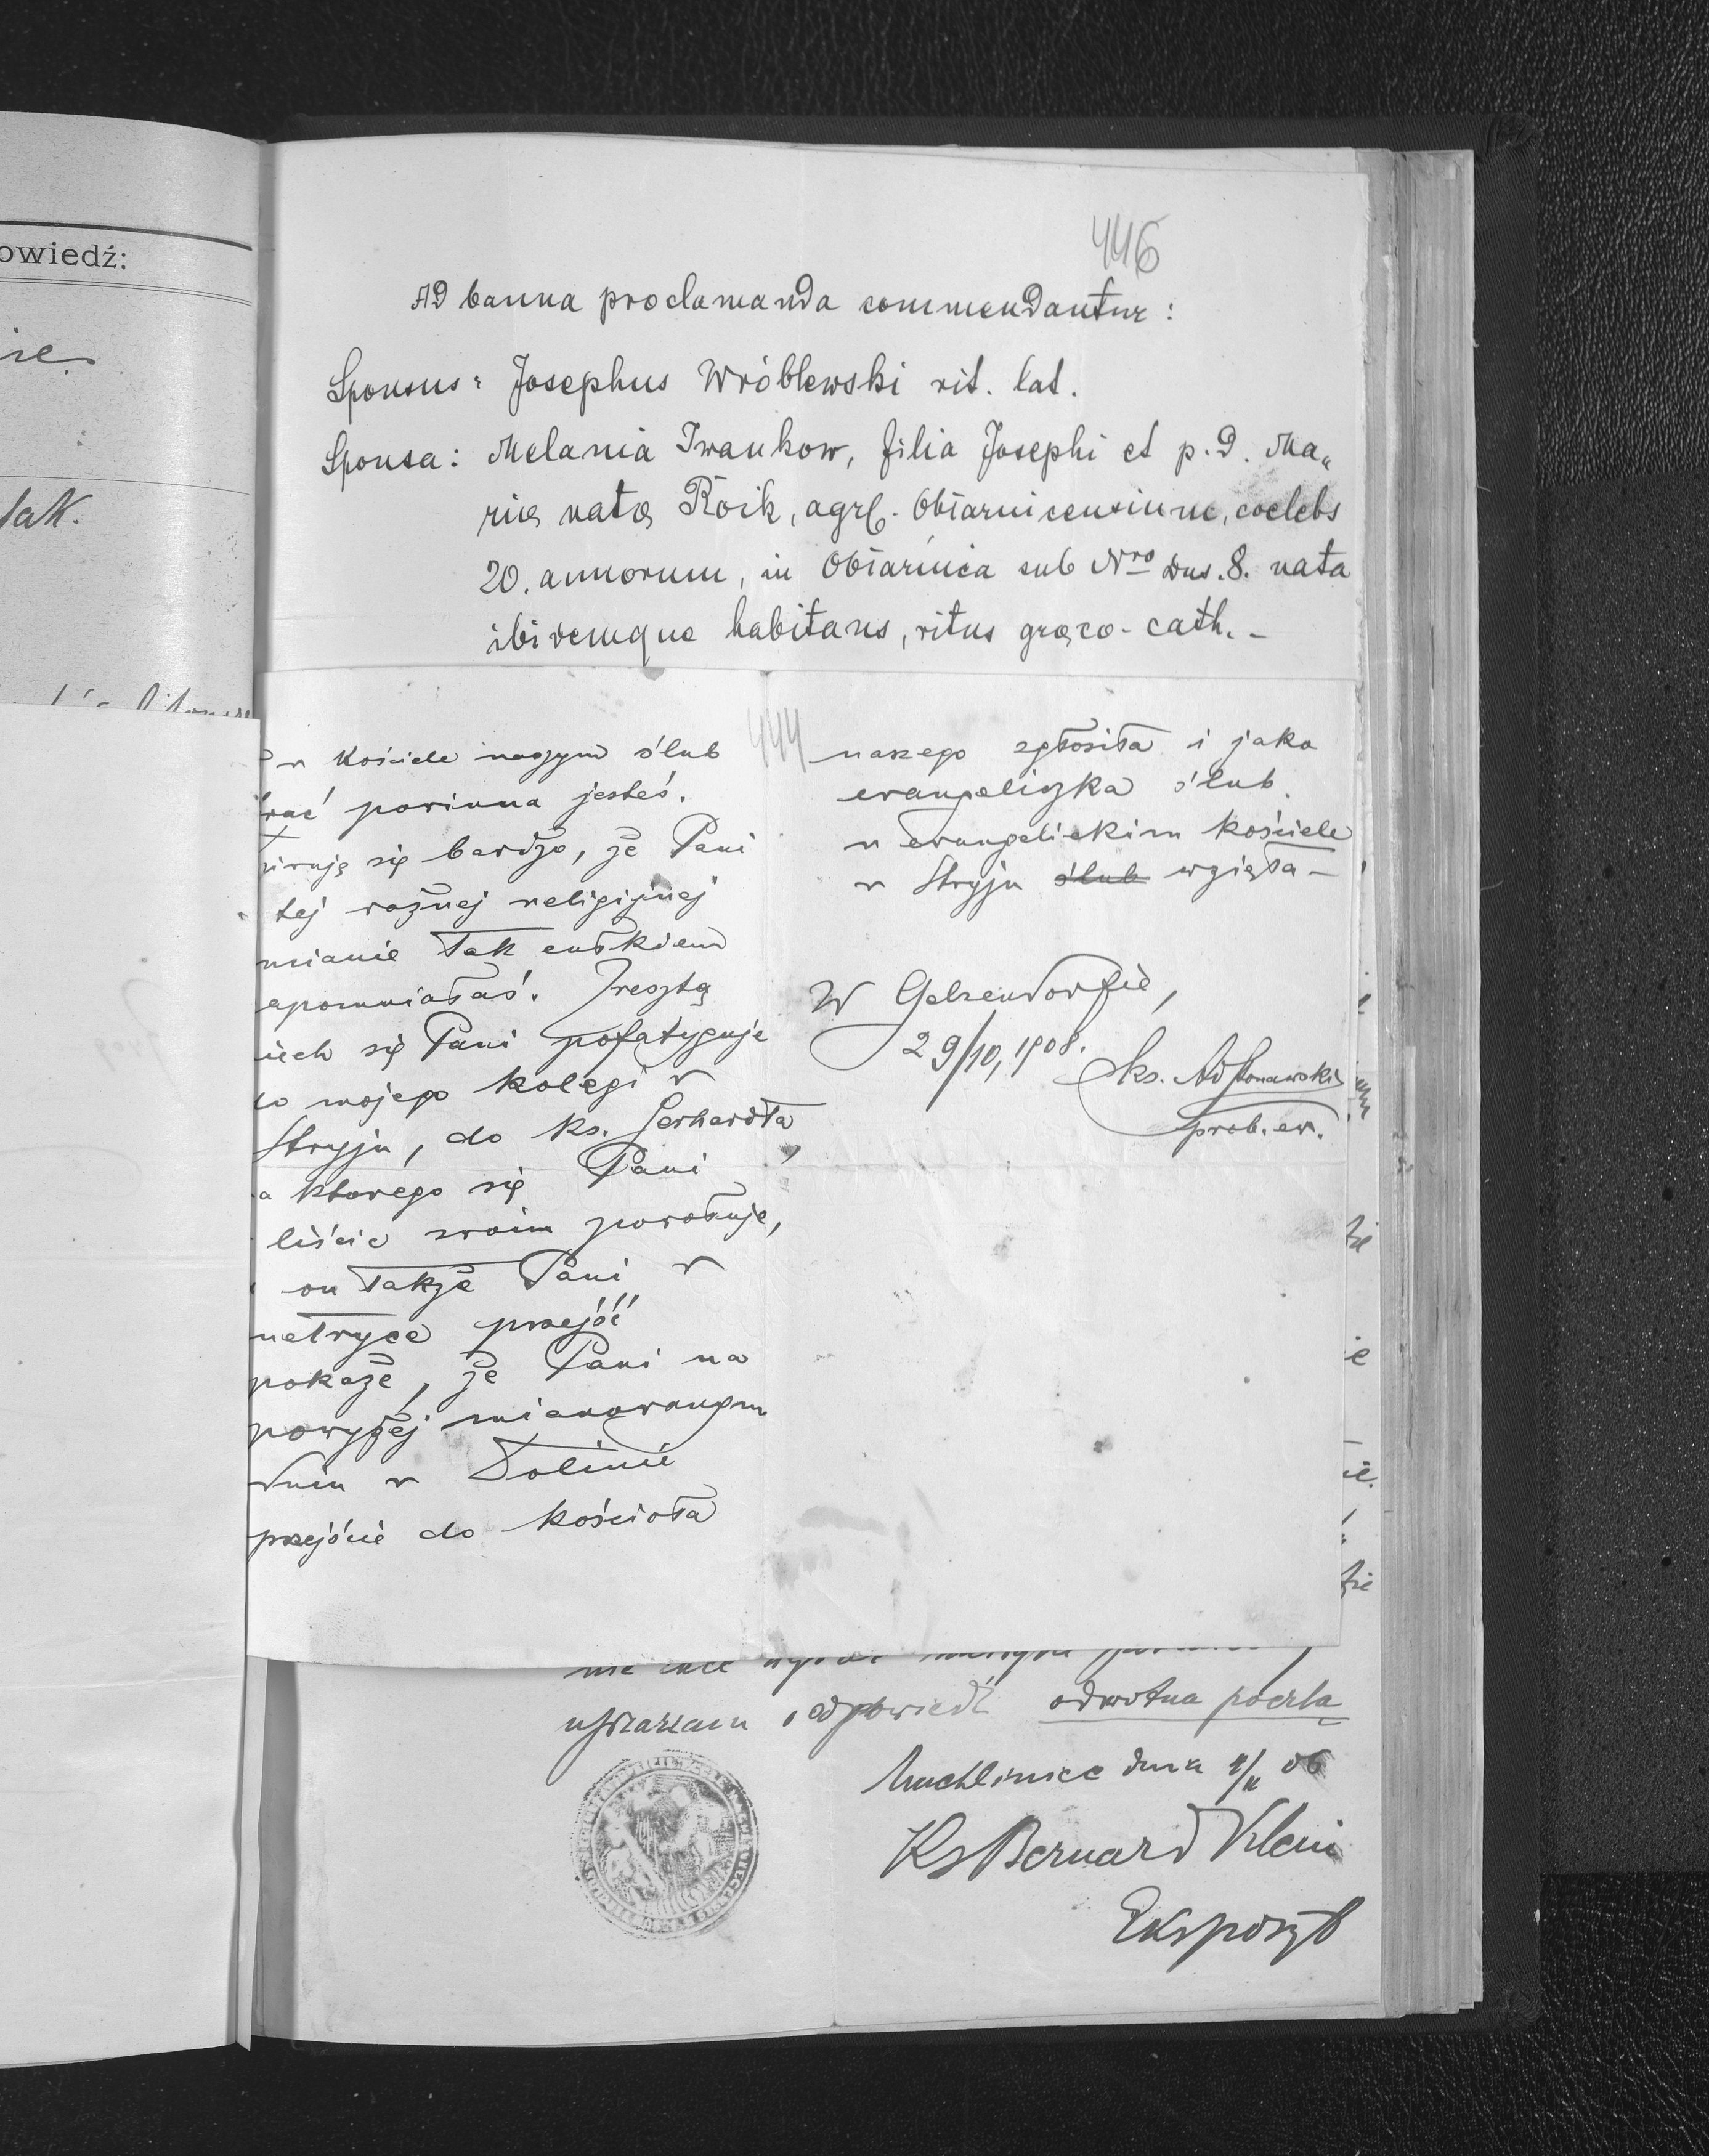 owiedź:
tak.
446
AD banna proclamanda commendantur:
Sponsus: Josephus Wróblewski rit. lat.
Sponsa: Melania Iwankow, filia Josephi et p. D. Ma„
riæ natæ Roik, agrc. Obłarnicensium, coelebs
20. annorum, in Obłarnica sub Nro Dus. 8. nata
ibidemque habitans, ritus græco-cath. -
w kościele naszym ślub
brać powinna jesteś.
się bardzo, że Pani
tej ważnej religijnej
mianie tak całkiem
apomniałaś. Zresztą
niech się Pani pofatyguje
do mojego kolegi w
Stryju, do ks. Gerhardta,
na którego się Pani
liście swoim powołuje,
on także Pani w
metryce przejść
pokaże, że Pani na
powyżej mianowanym
dniu w Dolinie
przejście do kościoła
444
naszego zgłosiła i jako
ewangeliczka ślub
w ewangelickim kościele
w Stryju ślub wzięła -
W Gelsendorfie,
29/10, 1908.
ks. Ad
prob. ew.
upraszam o odpowiedź odwrotną pocztą
Machliniec dnia 4/11 06
Ks Bernard Klein
Ekspozyt